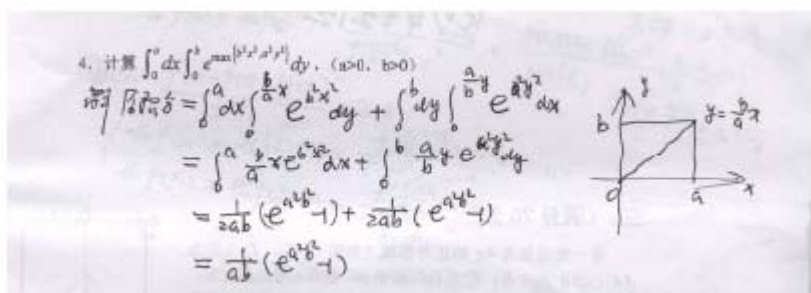 4. 计算 ∫₀ᵃ dx ∫₀ᵇ e^{max{b²x², a²y²}} dy, (a>0, b>0)
= ∫₀ᵃ dx ∫₀^{(b/a)x} e^{b²x²} dy + ∫₀ᵇ dy ∫₀^{(a/b)y} e^{a²y²} dx
= ∫₀ᵃ (b/a) x e^{b²x²} dx + ∫₀ᵇ (a/b) y e^{a²y²} dy
= 1/(2ab) (e^{a²b²} -1) + 1/(2ab) (e^{a²b²} -1)
= 1/(ab) (e^{a²b²} -1)
y
b
y = (b/a) x
0
a
x